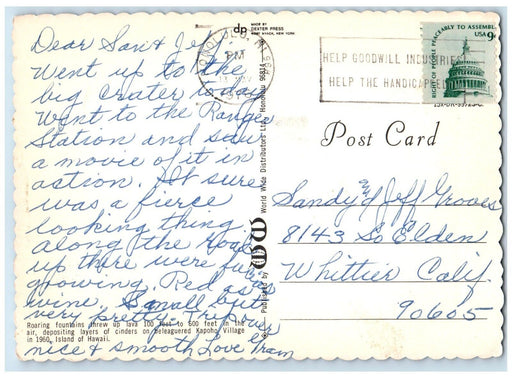 MADE BY
dp DEXTER PRESS
WEST NYACK, NEW YORK
HONOLULU, HI
PM
HELP GOODWILL INDUSTRIES
HELP THE HANDICAPPED
RIGHT OF PEOPLE PEACEABLY TO ASSEMBLE
USA 9c
Dear San & Jeff.
Went up to the
big crater today
went to the Ranger
Station and saw
a movie of it in
action. It sure
was a fierce
looking thing,
along the road
up there were
growing. Red as
wine. Small but
very pretty. Trip over
nice & smooth Love Fram
Roaring fountains threw up lava 100 feet to 500 feet in the
air, depositing layers of cinders on beleaguered Kapoho Village
in 1960, Island of Hawaii.
Published by WW World Wide Distributors Ltd. Honolulu 96814
Post Card
Sandy & Jeff Groves
8143 So Elden
Whittier Calif.
90605